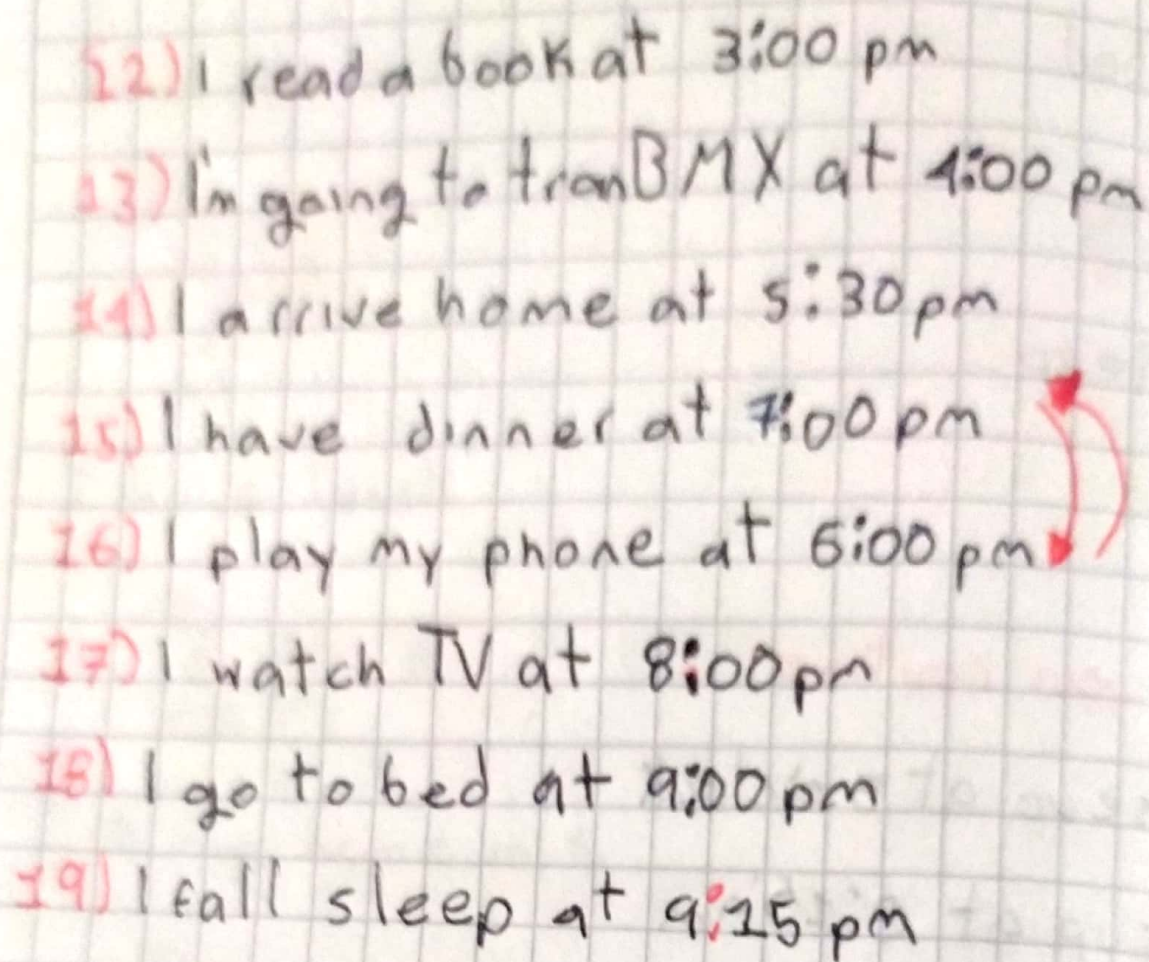 12) I read a book at 3:00 pm
13) I'm going to tran BMX at 4:00 pm
14) I arrive home at 5:30 pm
15) I have dinner at 7:00 pm
16) I play my phone at 6:00 pm
17) I watch TV at 8:00 pm
18) I go to bed at 9:00 pm
19) I fall sleep at 9:15 pm